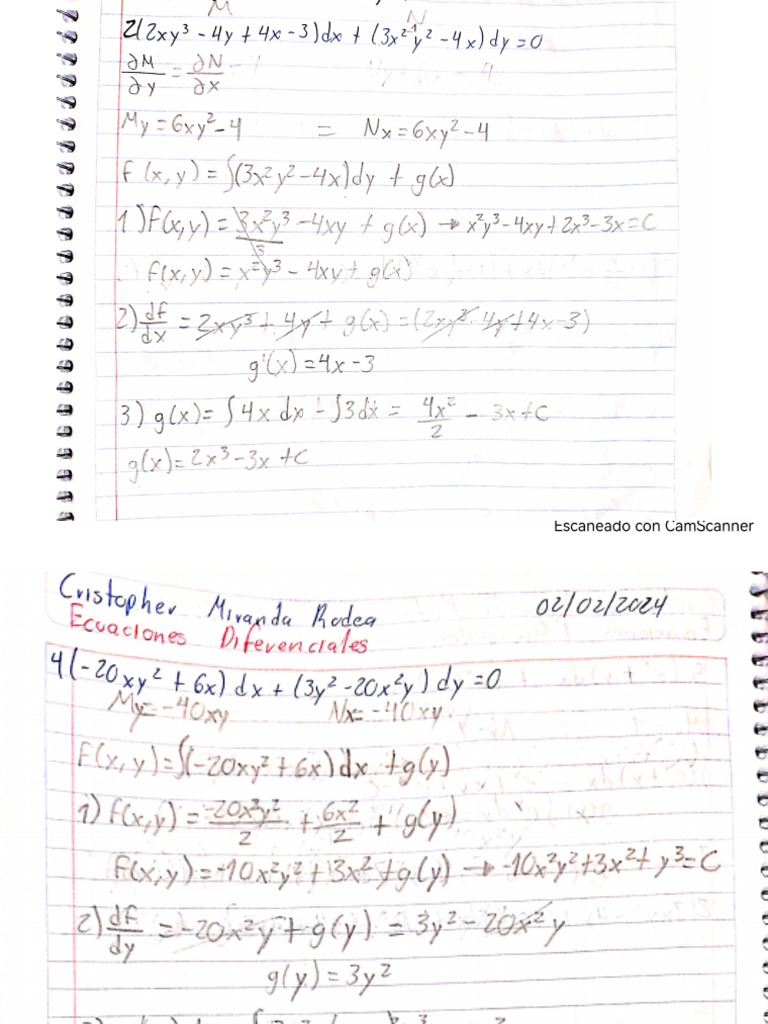 M N
2(2xy³ - 4y + 4x - 3)dx + (3x² y² - 4x)dy = 0
∂M/∂y = ∂N/∂x
My = 6xy² - 4 = Nx = 6xy² - 4
f(x,y) = ∫(3x²y² - 4x)dy + g(x)
1) f(x,y) = 3x²y³/3 - 4xy + g(x) → x²y³ - 4xy + 2x³ - 3x = C
f(x,y) = x²y³ - 4xy + g(x)
2) df/dx = 2xy³ + 4y + g(x) = (2xy³ - 4y + 4x - 3)
g'(x) = 4x - 3
3) g(x) = ∫4x dx - ∫3dx = 4x²/2 - 3x + C
g(x) = 2x³ - 3x + C
Escaneado con CamScanner
Cristopher Miranda Rodea 02/02/2024
Ecuaciones Diferenciales
4(-20xy² + 6x)dx + (3y² - 20x²y)dy = 0
My = -40xy Nx = -40xy
f(x,y) = ∫(-20xy² + 6x)dx + g(y)
1) f(x,y) = -20x²y²/2 + 6x²/2 + g(y)
f(x,y) = -10x²y² + 3x² + g(y) → -10x²y² + 3x² + y³ = C
2) df/dy = -20x²y + g(y) = 3y² - 20x²y
g(y) = 3y²